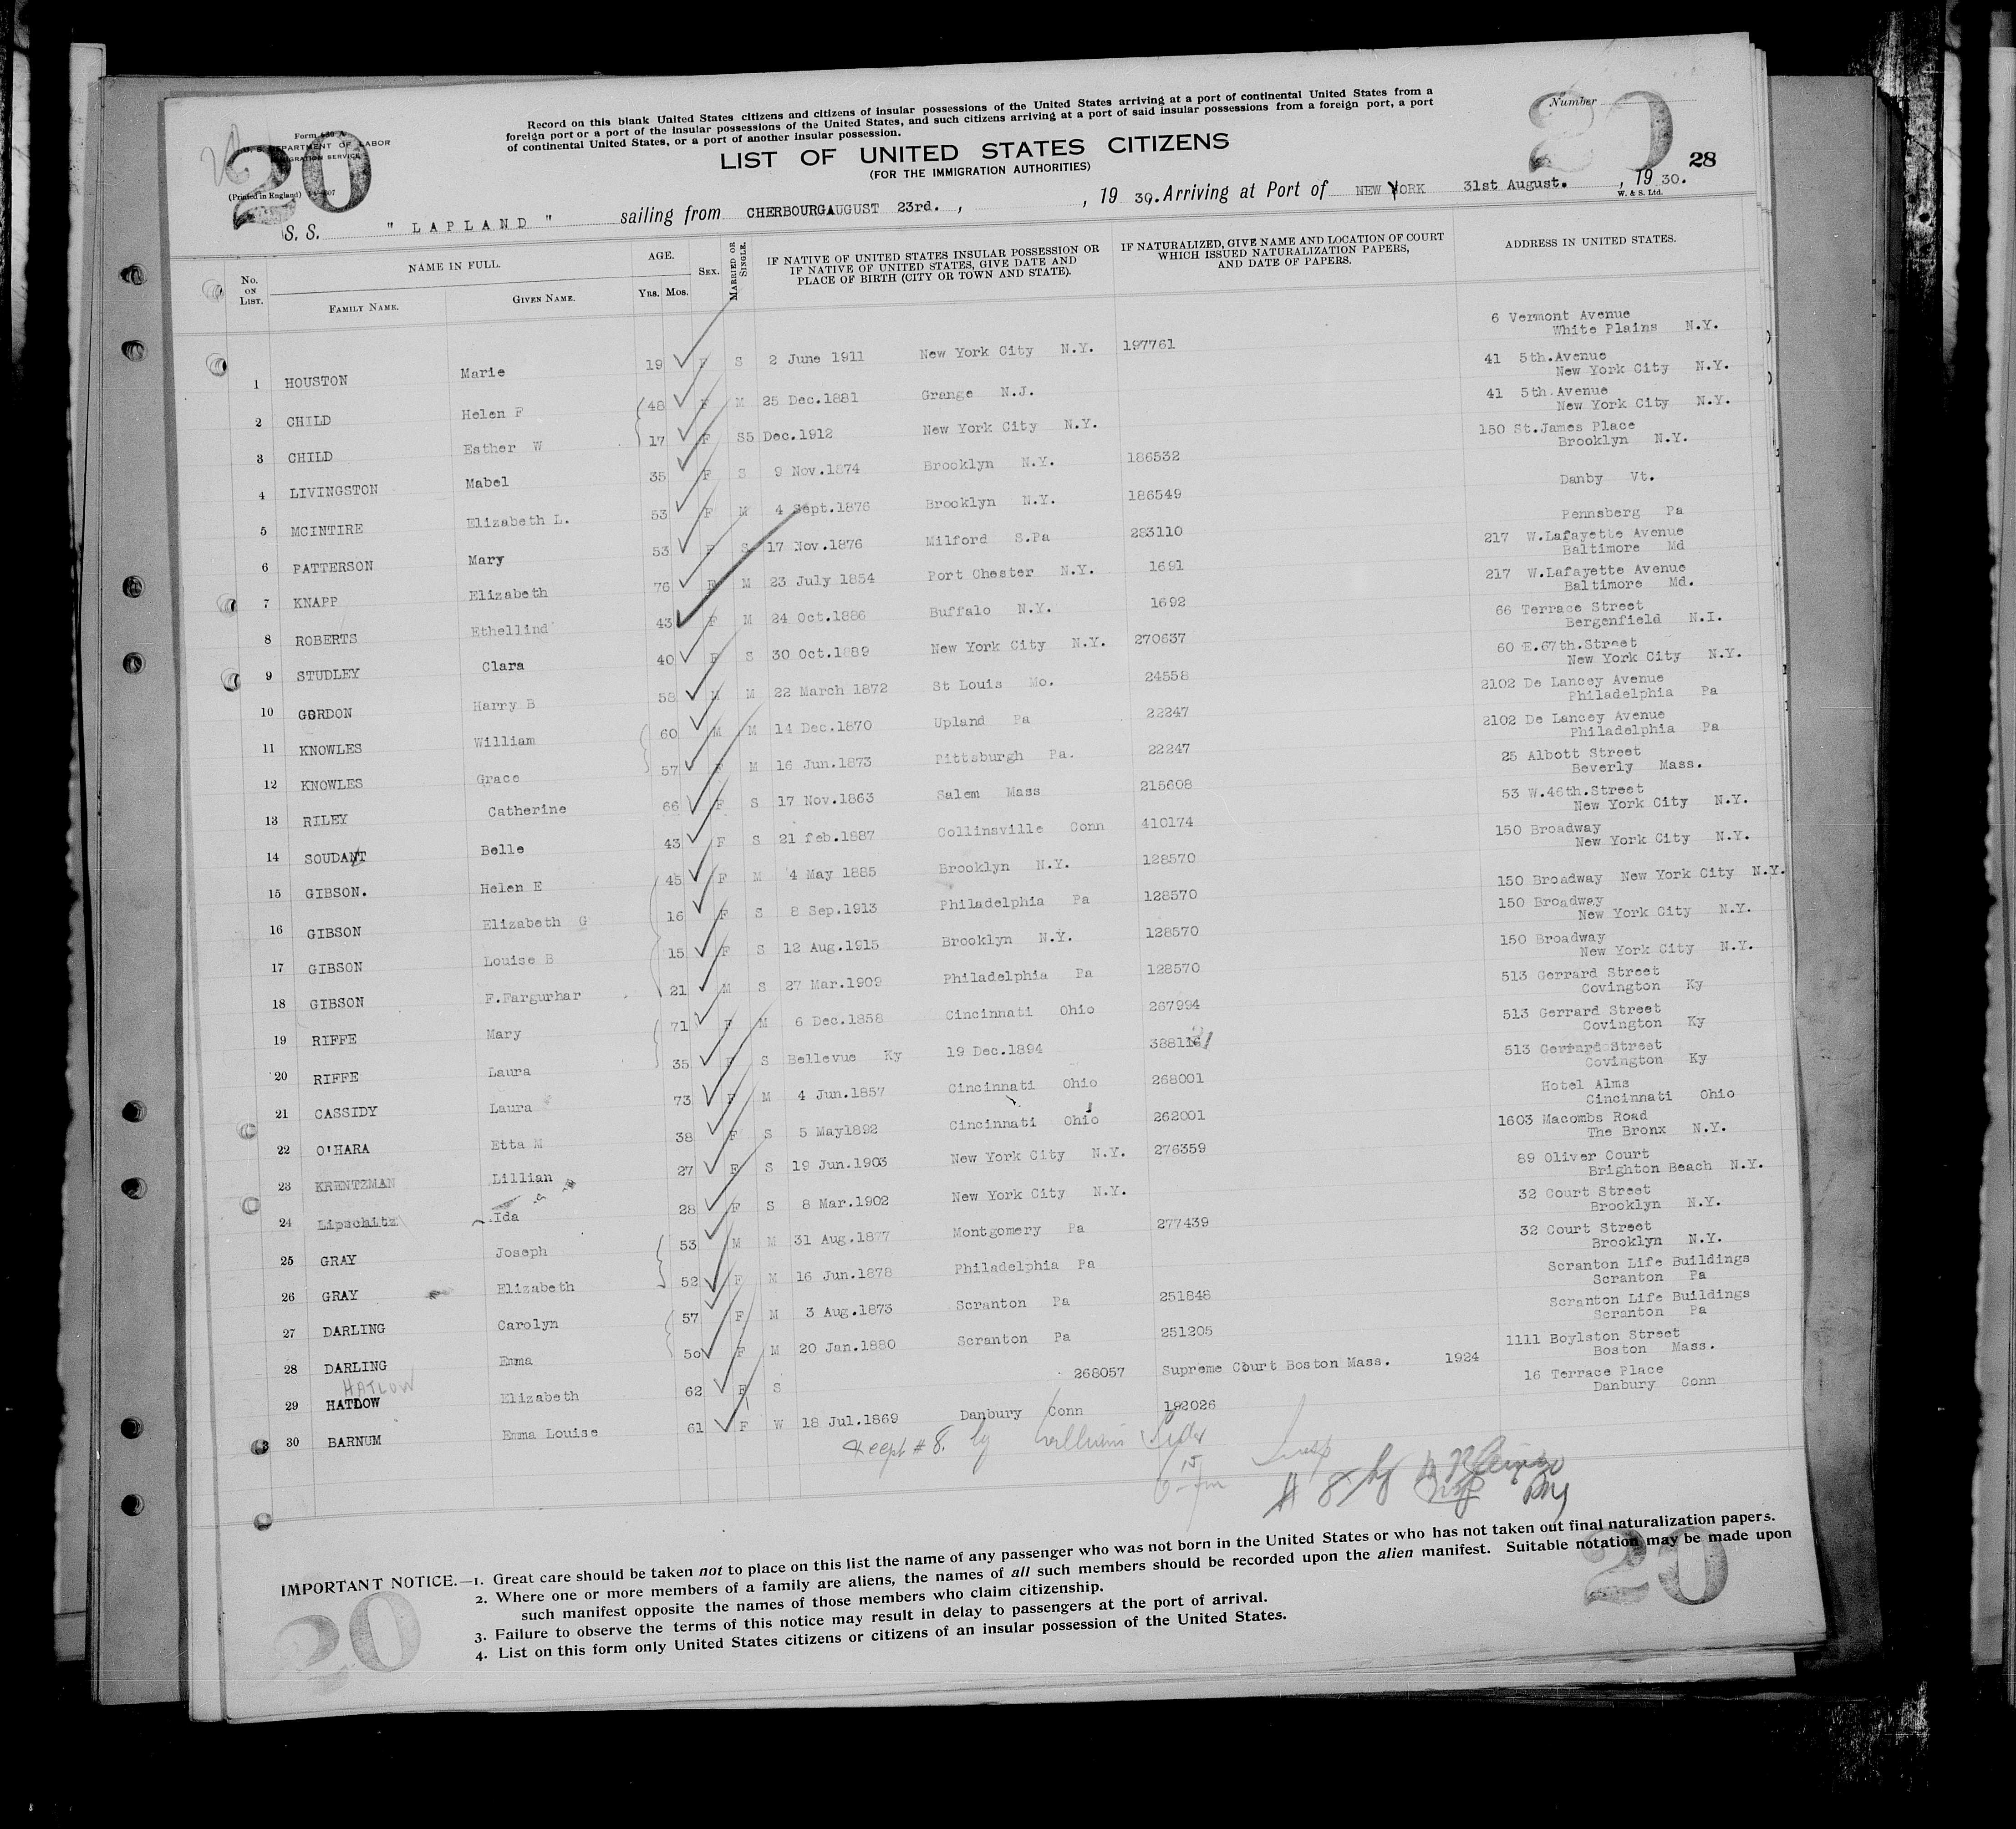 20
Form 630 A
DEPARTMENT OF LABOR
IMMIGRATION SERVICE
(Printed in England)
Number
20
28
Record on this blank United States citizens and citizens of insular possessions of the United States arriving at a port of continental United States from a
foreign port or a port of the insular possessions of the United States, and such citizens arriving at a port of said insular possessions from a foreign port, a port
of continental United States, or a port of another insular possession.
LIST OF UNITED STATES CITIZENS
(FOR THE IMMIGRATION AUTHORITIES)
S. S. " LAPLAND " sailing from CHERBOURG AUGUST 23rd. , , 19 30. Arriving at Port of NEW YORK 31st August. , 19 30.
W. & S. Ltd.
No. ON LIST. NAME IN FULL. FAMILY NAME. GIVEN NAME. AGE. YRS. MOS. SEX. MARRIED OR SINGLE. IF NATIVE OF UNITED STATES INSULAR POSSESSION OR IF NATIVE OF UNITED STATES, GIVE DATE AND PLACE OF BIRTH (CITY OR TOWN AND STATE). IF NATURALIZED, GIVE NAME AND LOCATION OF COURT WHICH ISSUED NATURALIZATION PAPERS, AND DATE OF PAPERS. ADDRESS IN UNITED STATES.
1 HOUSTON Marie 19 F S 2 June 1911 New York City N.Y. 197761 6 Vermont Avenue White Plains N.Y.
2 CHILD Helen F 48 F M 25 Dec.1881 Grange N.J. 41 5th.Avenue New York City N.Y.
3 CHILD Esther W 17 F S 5 Dec.1912 New York City N.Y. 41 5th.Avenue New York City N.Y.
4 LIVINGSTON Mabel 35 F S 9 Nov.1874 Brooklyn N.Y. 186532 150 St.James Place Brooklyn N.Y.
5 MCINTIRE Elizabeth L. 53 F M 4 Sept.1876 Brooklyn N.Y. 186549 Danby Vt.
6 PATTERSON Mary 53 F S 17 Nov.1876 Milford S.Pa 283110 Pennsberg Pa
7 KNAPP Elizabeth 76 F M 23 July 1854 Port Chester N.Y. 1691 217 W.Lafayette Avenue Baltimore Md
8 ROBERTS Ethellind 43 F M 24 Oct.1886 Buffalo N.Y. 1692 217 W.Lafayette Avenue Baltimore Md.
9 STUDLEY Clara 40 F S 30 Oct.1889 New York City N.Y. 270637 66 Terrace Street Bergenfield N.I.
10 GORDON Harry B 58 M M 22 March 1872 St Louis Mo. 24558 60 E.67th.Street New York City N.Y.
11 KNOWLES William 60 M M 14 Dec.1870 Upland Pa 22247 2102 De Lancey Avenue Philadelphia Pa
12 KNOWLES Grace 57 F M 16 Jun.1873 Pittsburgh Pa. 22247 2102 De Lancey Avenue Philadelphia Pa
13 RILEY Catherine 66 F S 17 Nov.1863 Salem Mass 215608 25 Albott Street Beverly Mass.
14 SOUDANT Belle 43 F S 21 feb.1887 Collinsville Conn 410174 53 W.46th.Street New York City N.Y.
15 GIBSON. Helen E 45 F M 4 May 1885 Brooklyn N.Y. 128570 150 Broadway New York City N.Y.
16 GIBSON Elizabeth G 16 F S 8 Sep.1913 Philadelphia Pa 128570 150 Broadway New York City N.Y.
17 GIBSON Louise B 15 F S 12 Aug.1915 Brooklyn N.Y. 128570 150 Broadway New York City N.Y.
18 GIBSON F.Fargurhar 21 M S 27 Mar.1909 Philadelphia Pa 128570 150 Broadway New York City N.Y.
19 RIFFE Mary 71 F M 6 Dec.1858 Cincinnati Ohio 267994 513 Gerrard Street Covington Ky
20 RIFFE Laura 35 F S Bellevue Ky 19 Dec.1894 513 Gerrard Street Covington Ky
21 CASSIDY Laura 73 F M 4 Jun.1857 Cincinnati Ohio 268001 513 Gerrard Street Covington Ky
22 O'HARA Etta M 38 F S 5 May1892 Cincinnati Ohio 262001 Hotel Alms Cincinnati Ohio
23 KRENTZMAN Lillian 27 F S 19 Jun.1903 New York City N.Y. 276359 1603 Macombs Road The Bronx N.Y.
24 Lipschitz Ida 28 F S 8 Mar.1902 New York City N.Y. 89 Oliver Court Brighton Beach N.Y.
25 GRAY Joseph 53 M M 31 Aug.1877 Montgomery Pa 277439 32 Court Street Brooklyn N.Y.
26 GRAY Elizabeth 52 F M 16 Jun.1878 Philadelphia Pa 32 Court Street Brooklyn N.Y.
27 DARLING Carolyn 57 F M 3 Aug.1873 Scranton Pa 251848 Scranton Life Buildings Scranton Pa
28 DARLING Emma 50 F M 20 Jan.1880 Scranton Pa 251205 Scranton Life Buildings Scranton Pa
HATLOW
29 HATLOW Elizabeth 62 F S 268057 Supreme Court Boston Mass. 1924 1111 Boylston Street Boston Mass.
30 BARNUM Emma Louise 61 F W 18 Jul.1869 Danbury Conn 192026 16 Terrace Place Danbury Conn
Except # 8. by
Insp
# 8 by
Insp
IMPORTANT NOTICE.—1. Great care should be taken not to place on this list the name of any passenger who was not born in the United States or who has not taken out final naturalization papers.
2. Where one or more members of a family are aliens, the names of all such members should be recorded upon the alien manifest. Suitable notation may be made upon
such manifest opposite the names of those members who claim citizenship.
3. Failure to observe the terms of this notice may result in delay to passengers at the port of arrival.
4. List on this form only United States citizens or citizens of an insular possession of the United States.
20
20